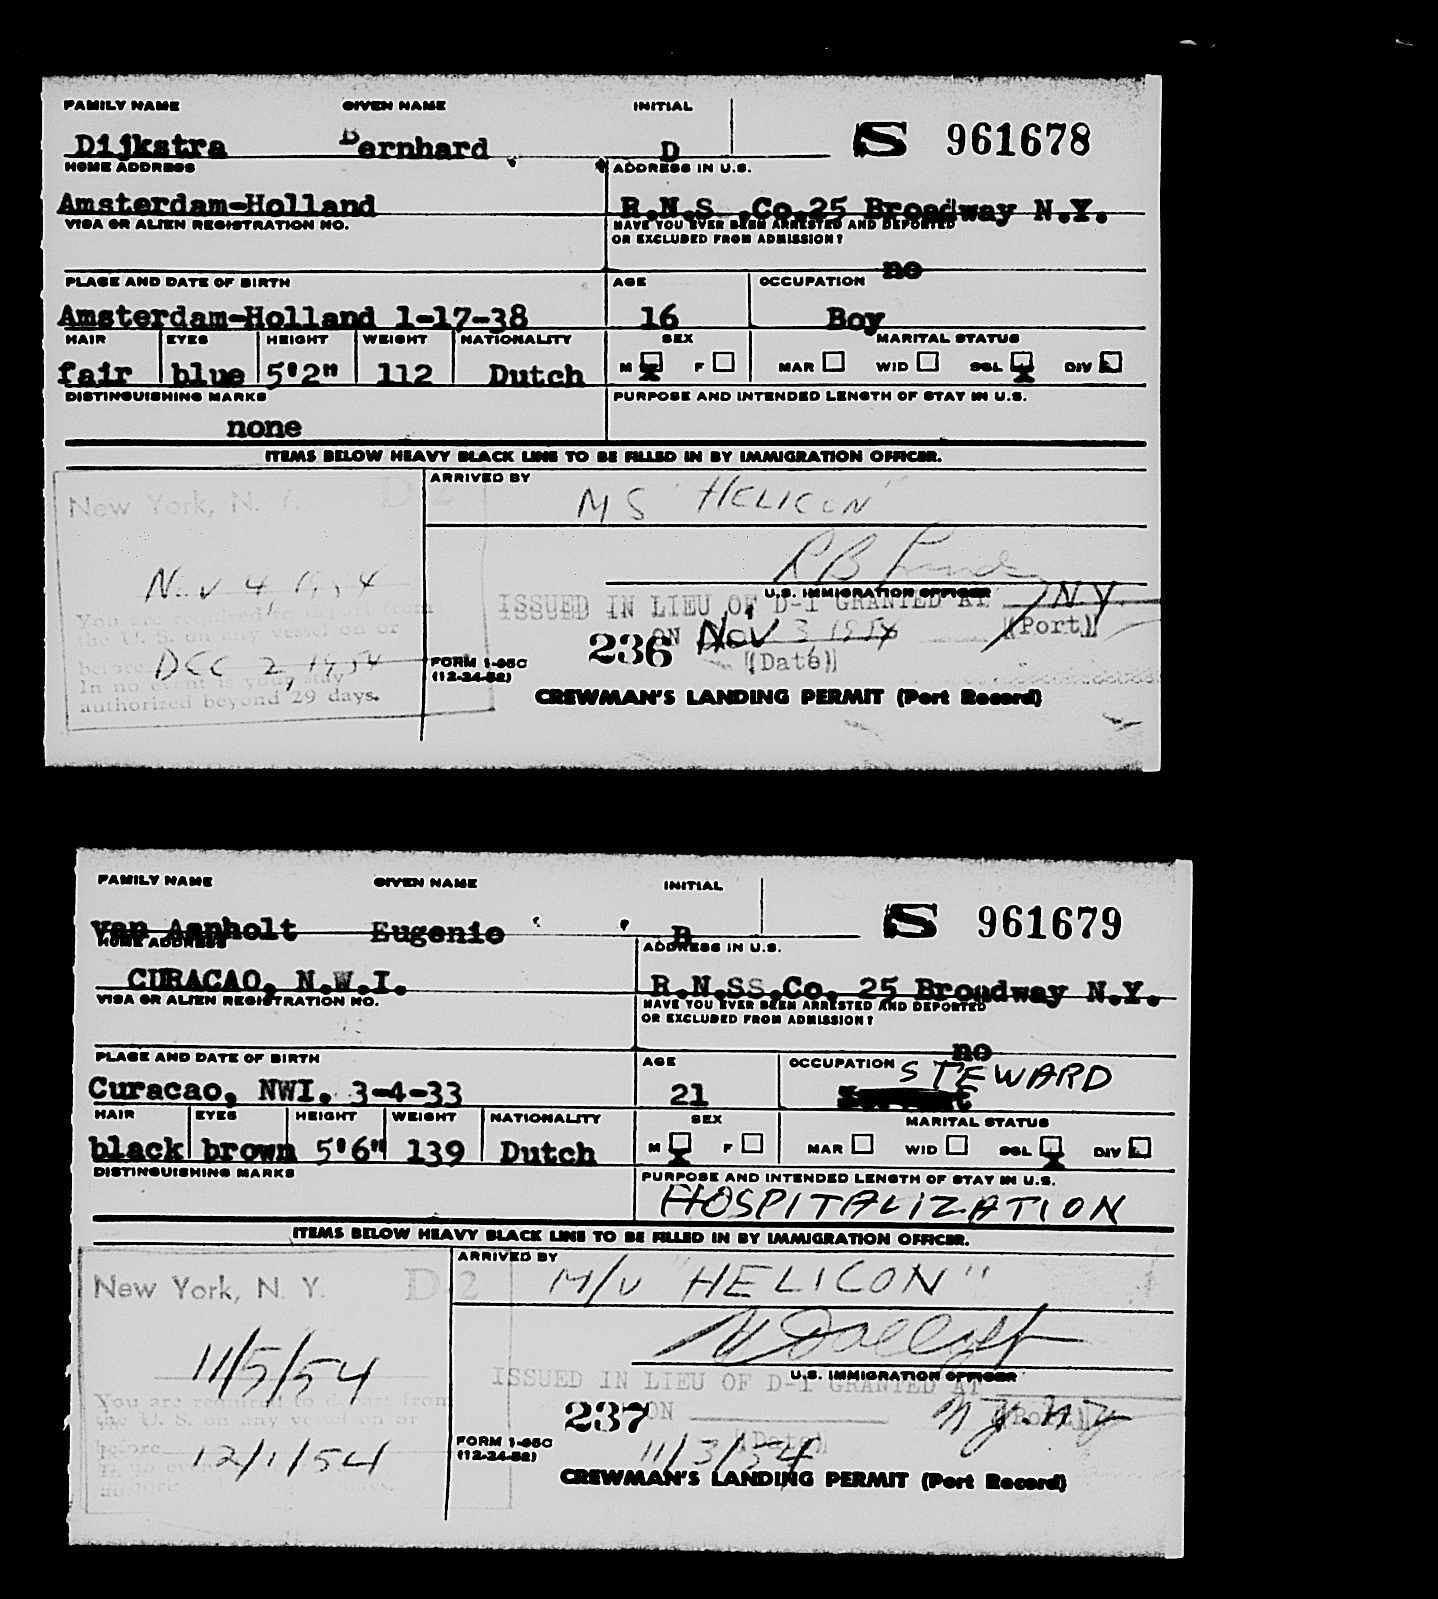 FAMILY NAME GIVEN NAME INITIAL
S 961678
Dijkstra Bernhard D
HOME ADDRESS ADDRESS IN U.S.
Amsterdam-Holland R.N.S .Co.25 Broadway N.Y.
VISA OR ALIEN REGISTRATION NO. HAVE YOU EVER BEEN ARRESTED AND DEPORTED
OR EXCLUDED FROM ADMISSION?
no
PLACE AND DATE OF BIRTH AGE OCCUPATION
Amsterdam-Holland 1-17-38 16 Boy
HAIR EYES HEIGHT WEIGHT NATIONALITY SEX MARITAL STATUS
fair blue 5'2" 112 Dutch M X F MAR WID SGL X DIV
DISTINGUISHING MARKS PURPOSE AND INTENDED LENGTH OF STAY IN U.S.
none
ITEMS BELOW HEAVY BLACK LINE TO BE FILLED IN BY IMMIGRATION OFFICER.
ARRIVED BY
MS "HELICON"
New York, N. Y. D-2
Nov 4 1954
You are required to depart from
the U. S. on any vessel on or
before DEC 2, 1954
In no event is your stay
authorized beyond 29 days.
R B
U.S. IMMIGRATION OFFICER
ISSUED IN LIEU OF D-1 GRANTED AT NY.
(Port)
236 ON Nov 3 1954
(Date)
FORM I-95C
(12-24-52)
CREWMAN'S LANDING PERMIT (Port Record)
FAMILY NAME GIVEN NAME INITIAL
S 961679
van Aanholt Eugenio B
HOME ADDRESS ADDRESS IN U.S.
CURACAO, N.W.I. R.N.SS.Co. 25 Broadway N.Y.
VISA OR ALIEN REGISTRATION NO. HAVE YOU EVER BEEN ARRESTED AND DEPORTED
OR EXCLUDED FROM ADMISSION?
no
PLACE AND DATE OF BIRTH AGE OCCUPATION STEWARD
Curacao, NWI. 3-4-33 21
HAIR EYES HEIGHT WEIGHT NATIONALITY SEX MARITAL STATUS
black brown 5'6" 139 Dutch M X F MAR WID SGL X DIV
DISTINGUISHING MARKS PURPOSE AND INTENDED LENGTH OF STAY IN U.S.
HOSPITALIZATION
ITEMS BELOW HEAVY BLACK LINE TO BE FILLED IN BY IMMIGRATION OFFICER.
ARRIVED BY
M/V "HELICON"
New York, N. Y. D-2
11/5/54
You are required to depart from
the U. S. on any vessel on or
before 12/1/54
U.S. IMMIGRATION OFFICER
ISSUED IN LIEU OF D-1 GRANTED AT
N.Y. N.Y.
(Port)
237 ON
11/3/54
(Date)
FORM I-95C
(12-24-52)
CREWMAN'S LANDING PERMIT (Port Record)